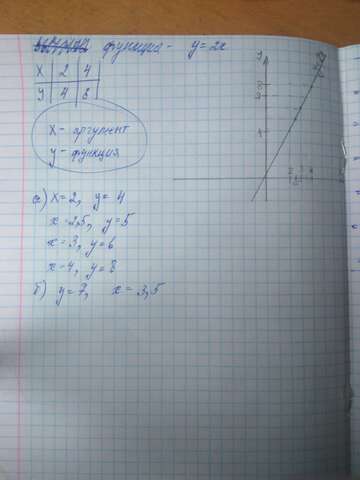 функция - y=2x
x 2 4
y 4 8
x - аргумент
y - функция
а) x=2, y= 4
x=2,5, y=5
x=3, y=6
x=4, y=8
б) y=7, x=3,5
y
8